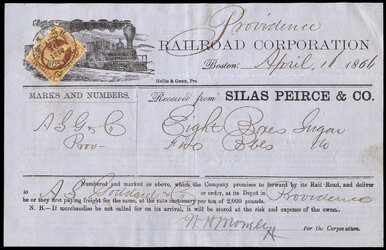 Providence
RAILROAD CORPORATION
Boston, April 11 1866
Hollis & Gunn, Pr.
MARKS AND NUMBERS. Received from SILAS PEIRCE & CO.
A S G & C Eight Boxes Sugar
Prov Two Bbls Do
Numbered and marked as above, which the Company promises to forward by its Rail Road, and deliver
to A S Goddard & Co or order, at its Depot in Providence
he or they first paying freight for the same, at the rate customary per ton of 2,000 pounds.
N. B.—If merchandise be not called for on its arrival, it will be stored at the risk and expense of the owner.
For the Corporation.